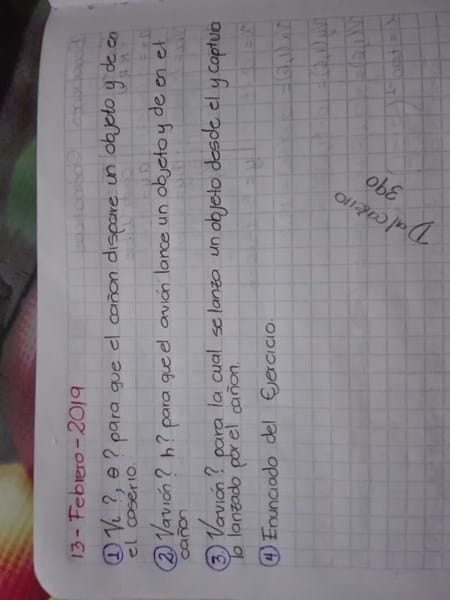 13-Febrero-2019
① Vi?, θ? para que el cañon dispare un objeto y de en
el caserio.
② Vavión? h? para que el avión lance un objeto y de en el
cañon
③ Vavión? para la cual se lanza un objeto desde el y captula
lo lanzado por el cañon.
④ Enunciado del Ejercicio.
D al caserio
390